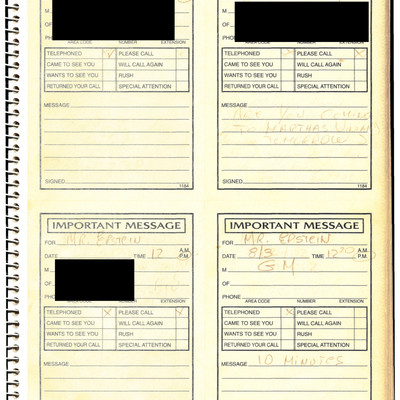 M
OF
PHONE
AREA CODE NUMBER EXTENSION
TELEPHONED X PLEASE CALL
CAME TO SEE YOU WILL CALL AGAIN
WANTS TO SEE YOU RUSH
RETURNED YOUR CALL SPECIAL ATTENTION
MESSAGE
SIGNED
1184
M
OF
PHO
AREA CODE NUMBER EXTENSION
TELEPHONED X PLEASE CALL
CAME TO SEE YOU WILL CALL AGAIN
WANTS TO SEE YOU RUSH
RETURNED YOUR CALL SPECIAL ATTENTION
MESSAGE
ARE YOU COMING
TO MARTHAS
TOMORROW
SIGNED
1184
IMPORTANT MESSAGE
FOR MR. EPSTEIN
DATE TIME 12 A.M. P.M.
M
OF
PHO
AREA CODE NUMBER EXTENSION
TELEPHONED X PLEASE CALL
CAME TO SEE YOU WILL CALL AGAIN
WANTS TO SEE YOU RUSH
RETURNED YOUR CALL SPECIAL ATTENTION
MESSAGE
IMPORTANT MESSAGE
FOR MR. EPSTEIN
DATE 8/3 TIME A.M. P.M.
M G.M
OF
PHONE
AREA CODE NUMBER EXTENSION
TELEPHONED X PLEASE CALL
CAME TO SEE YOU WILL CALL AGAIN
WANTS TO SEE YOU RUSH
RETURNED YOUR CALL SPECIAL ATTENTION
MESSAGE 10 MINUTES